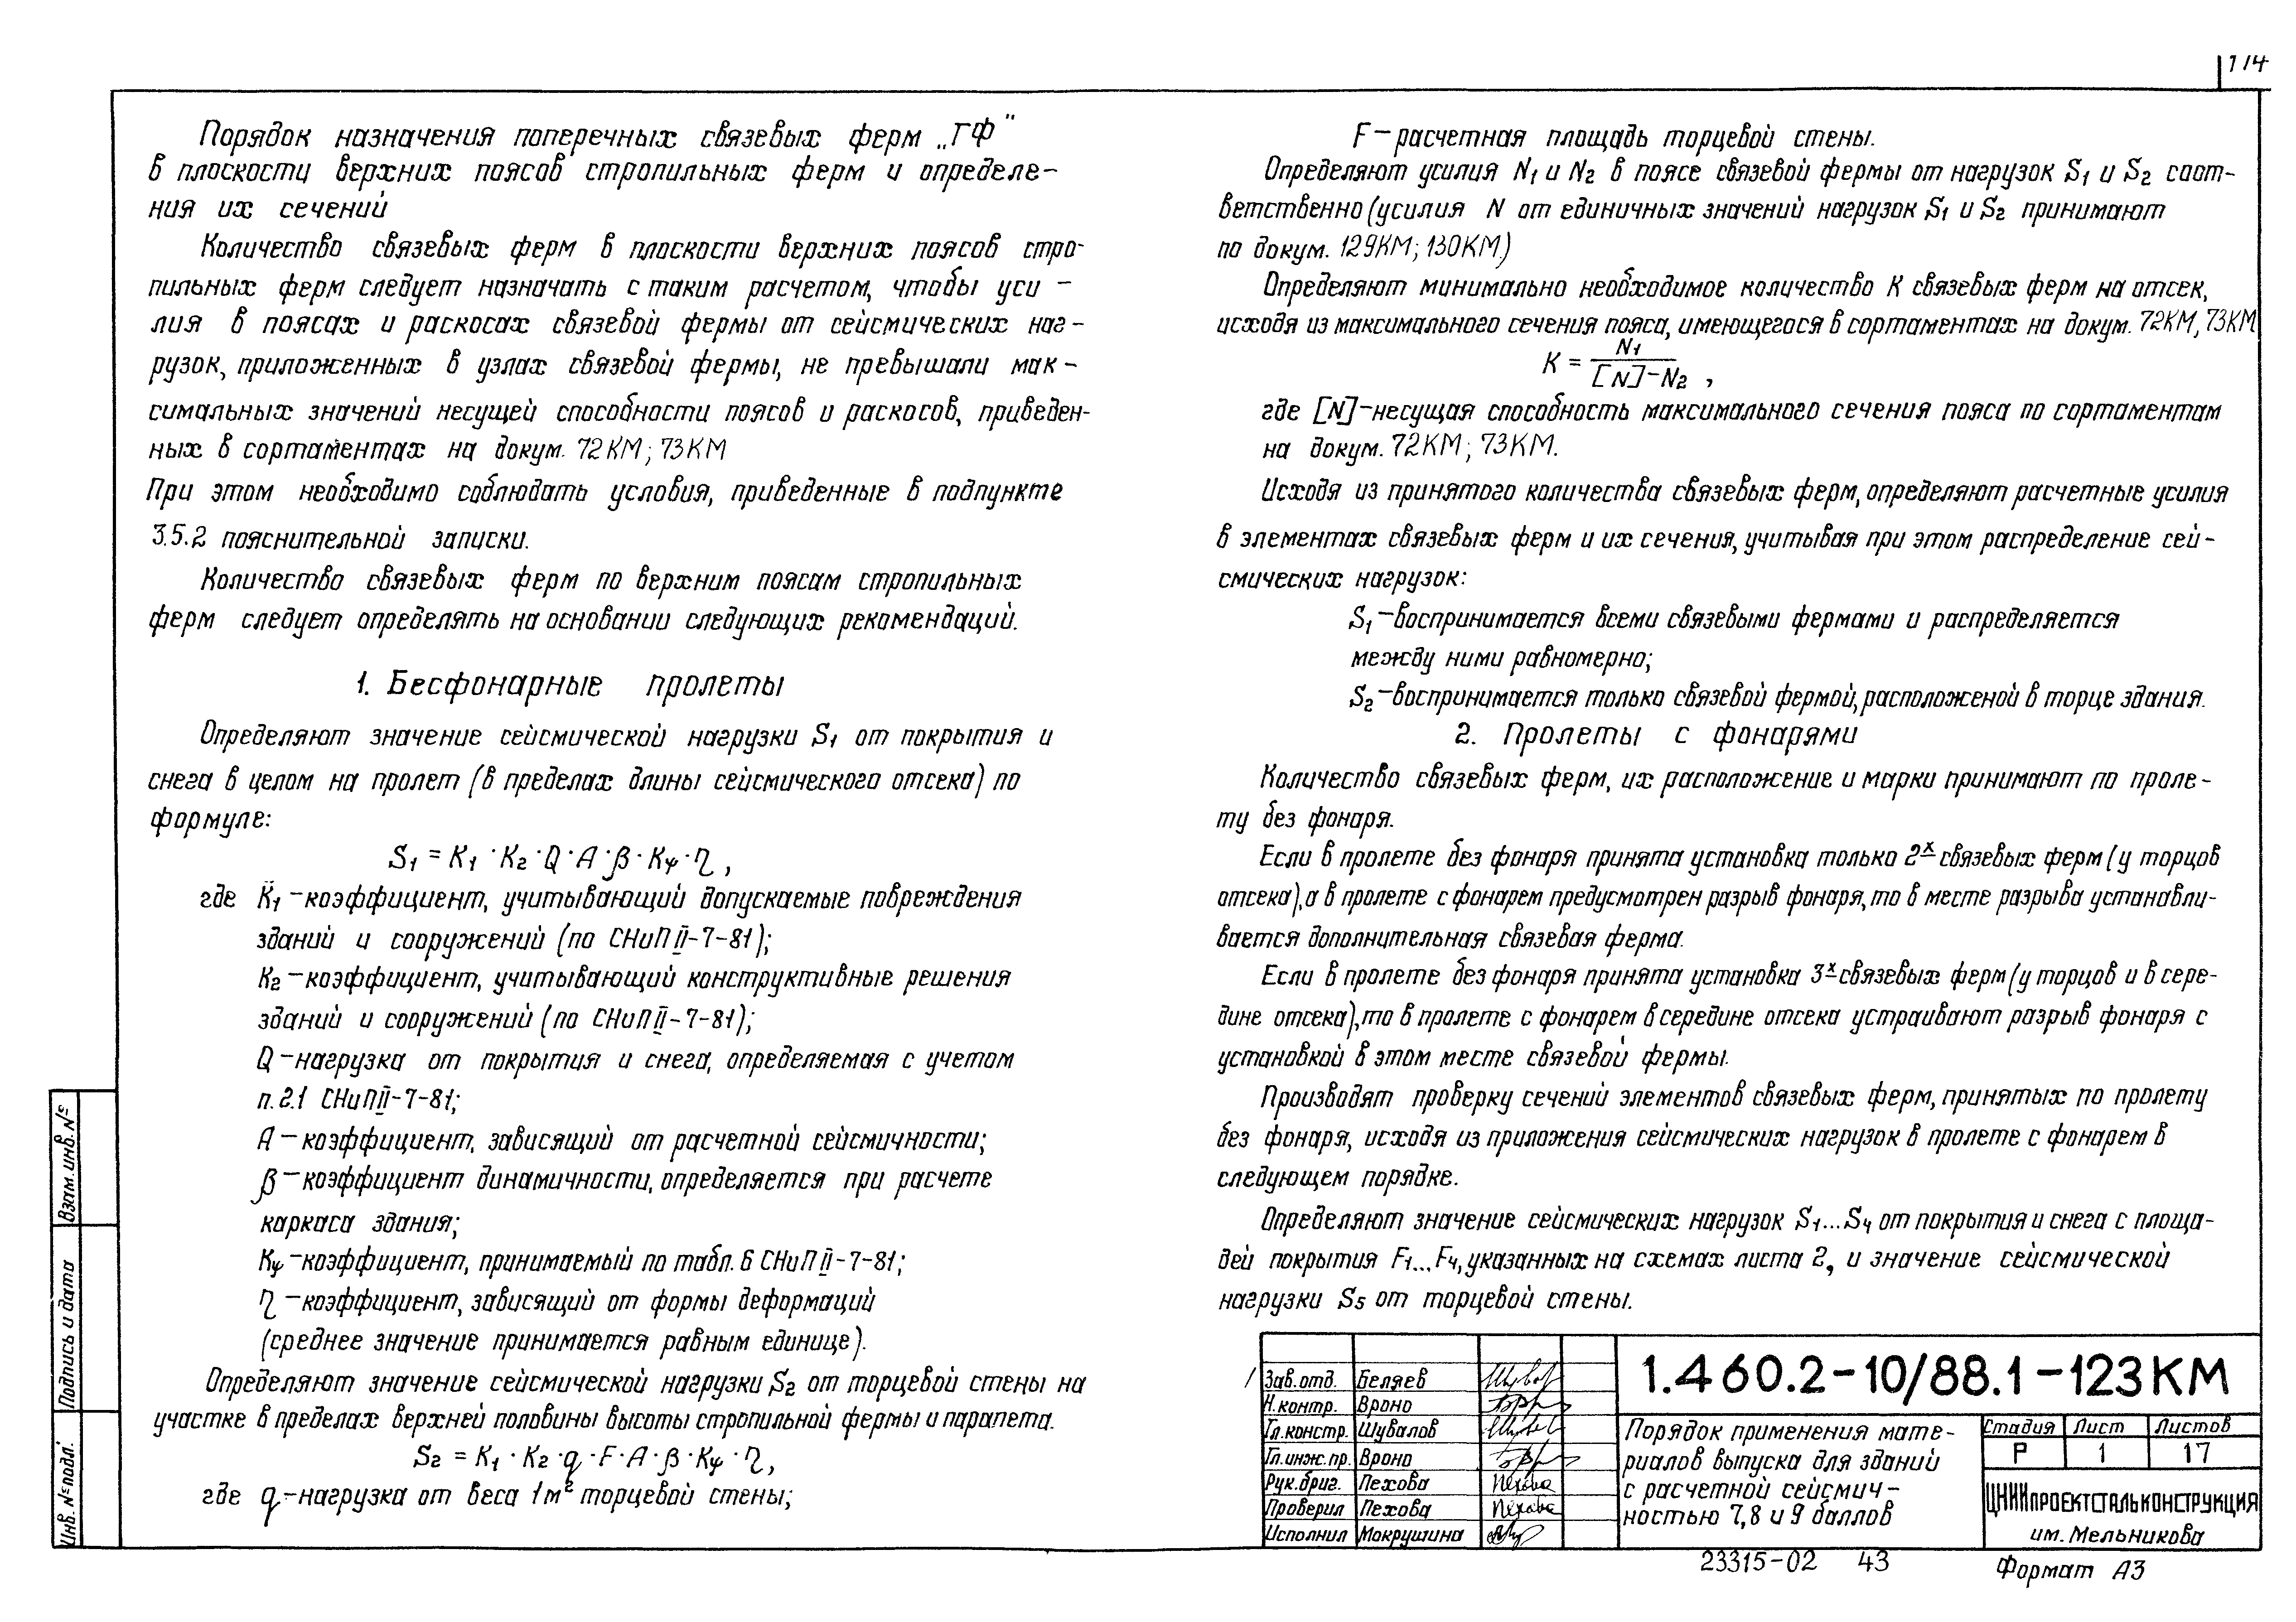 114
Порядок назначения поперечных связевых ферм „ГФ"
в плоскости верхних поясов стропильных ферм и определе-
ния их сечений
Количество связевых ферм в плоскости верхних поясов стро-
пильных ферм следует назначать с таким расчетом, чтобы уси-
лия в поясах и раскосах связевой фермы от сейсмических наг-
рузок, приложенных в узлах связевой фермы, не превышали мак-
симальных значений несущей способности поясов и раскосов, приведен-
ных в сортаментах на докум. 72КМ; 73КМ
При этом необходимо соблюдать условия, приведенные в подпункте
3.5.2 пояснительной записки.
Количество связевых ферм по верхним поясам стропильных
ферм следует определять на основании следующих рекомендаций.
1. Бесфонарные пролеты
Определяют значение сейсмической нагрузки S₁ от покрытия и
снега в целом на пролет (в пределах длины сейсмического отсека) по
формуле:
S₁ = К₁ · К₂ · Q · А · β · Кψ · η,
где К₁ – коэффициент, учитывающий допускаемые повреждения
зданий и сооружений (по СНиП II-7-81);
К₂ – коэффициент, учитывающий конструктивные решения
зданий и сооружений (по СНиП II-7-81);
Q – нагрузка от покрытия и снега, определяемая с учетом
п. 2.1 СНиП II-7-81;
А – коэффициент, зависящий от расчетной сейсмичности;
β – коэффициент динамичности, определяется при расчете
каркаса здания;
Кψ – коэффициент, принимаемый по табл. 6 СНиП II-7-81;
η – коэффициент, зависящий от формы деформаций
(среднее значение принимается равным единице).
Определяют значение сейсмической нагрузки S₂ от торцевой стены на
участке в пределах верхней половины высоты стропильной фермы и парапета.
S₂ = К₁ · К₂ · q · F · А · β · Кψ · η,
где q – нагрузка от веса 1м² торцевой стены;
F – расчетная площадь торцевой стены.
Определяют усилия N₁ и N₂ в поясе связевой фермы от нагрузок S₁ и S₂ соот-
ветственно (усилия N от единичных значений нагрузок S₁ и S₂ принимают
по докум. 129КМ; 130КМ.)
Определяют минимально необходимое количество К связевых ферм на отсек,
исходя из максимального сечения пояса, имеющегося в сортаментах на докум. 72КМ, 73КМ
К = N₁ / ([N] – N₂) ,
где [N] – несущая способность максимального сечения пояса по сортаментам
на докум. 72КМ; 73КМ.
Исходя из принятого количества связевых ферм, определяют расчетные усилия
в элементах связевых ферм и их сечения, учитывая при этом распределение сей-
смических нагрузок:
S₁ – воспринимается всеми связевыми фермами и распределяется
между ними равномерно;
S₂ – воспринимается только связевой фермой, расположеной в торце здания.
2. Пролеты с фонарями
Количество связевых ферм, их расположение и марки принимают по проле-
ту без фонаря.
Если в пролете без фонаря принята установка только 2ˣ связевых ферм (у торцов
отсека), а в пролете с фонарем предусмотрен разрыв фонаря, то в месте разрыва устанавли-
вается дополнительная связевая ферма.
Если в пролете без фонаря принята установка 3ˣ связевых ферм (у торцов и в сере-
дине отсека), то в пролете с фонарем в середине отсека устраивают разрыв фонаря с
установкой в этом месте связевой фермы.
Производят проверку сечений элементов связевых ферм, принятых по пролету
без фонаря, исходя из приложения сейсмических нагрузок в пролете с фонарем в
следующем порядке.
Определяют значение сейсмических нагрузок S₁...S₄ от покрытия и снега с площа-
дей покрытия F₁...F₄, указанных на схемах листа 2, и значение сейсмической
нагрузки S₅ от торцевой стены.
Взам. инв. №
Подпись и дата
Инв. № подл.
Зав. отд. Беляев
Н. контр. Вроно
Гл. констр. Шувалов
Гл. инж. пр. Вроно
Рук. бриг. Пехова Пехова
Проверил Пехова Пехова
Исполнил Мокрушина
1.460.2-10/88.1-123КМ
Порядок применения мате-
риалов выпуска для зданий
с расчетной сейсмич-
ностью 7, 8 и 9 баллов
Стадия Лист Листов
Р 1 17
ЦНИИПРОЕКТСТАЛЬКОНСТРУКЦИЯ
им. Мельникова
23315-02 43
Формат А3